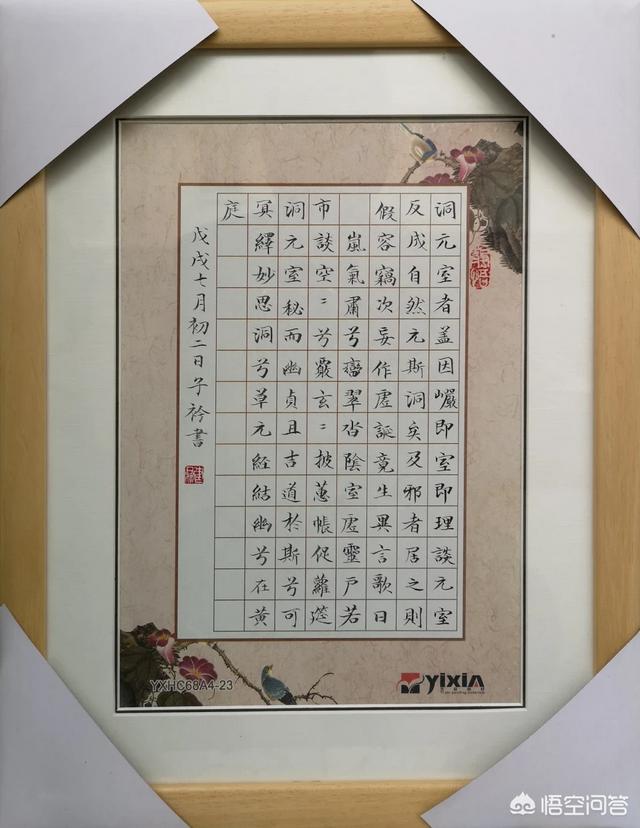 洞元室者盖因巗即室即理談元室
反成自然元斯洞矣及邪者居之則
假容竊次妄作虛誕竟生異言歌曰
嵐氣肅兮巒翠沓陰室虛靈户若
市談空〻兮覈玄〻披蕙帳促蘿筵
洞元室秘而幽貞且吉道於斯兮可
冥繹妙思洞兮草元経結幽兮在黄
庭
戊戌七月初二日子衿書
YXHC68A4-23
YixiA
悟空问答